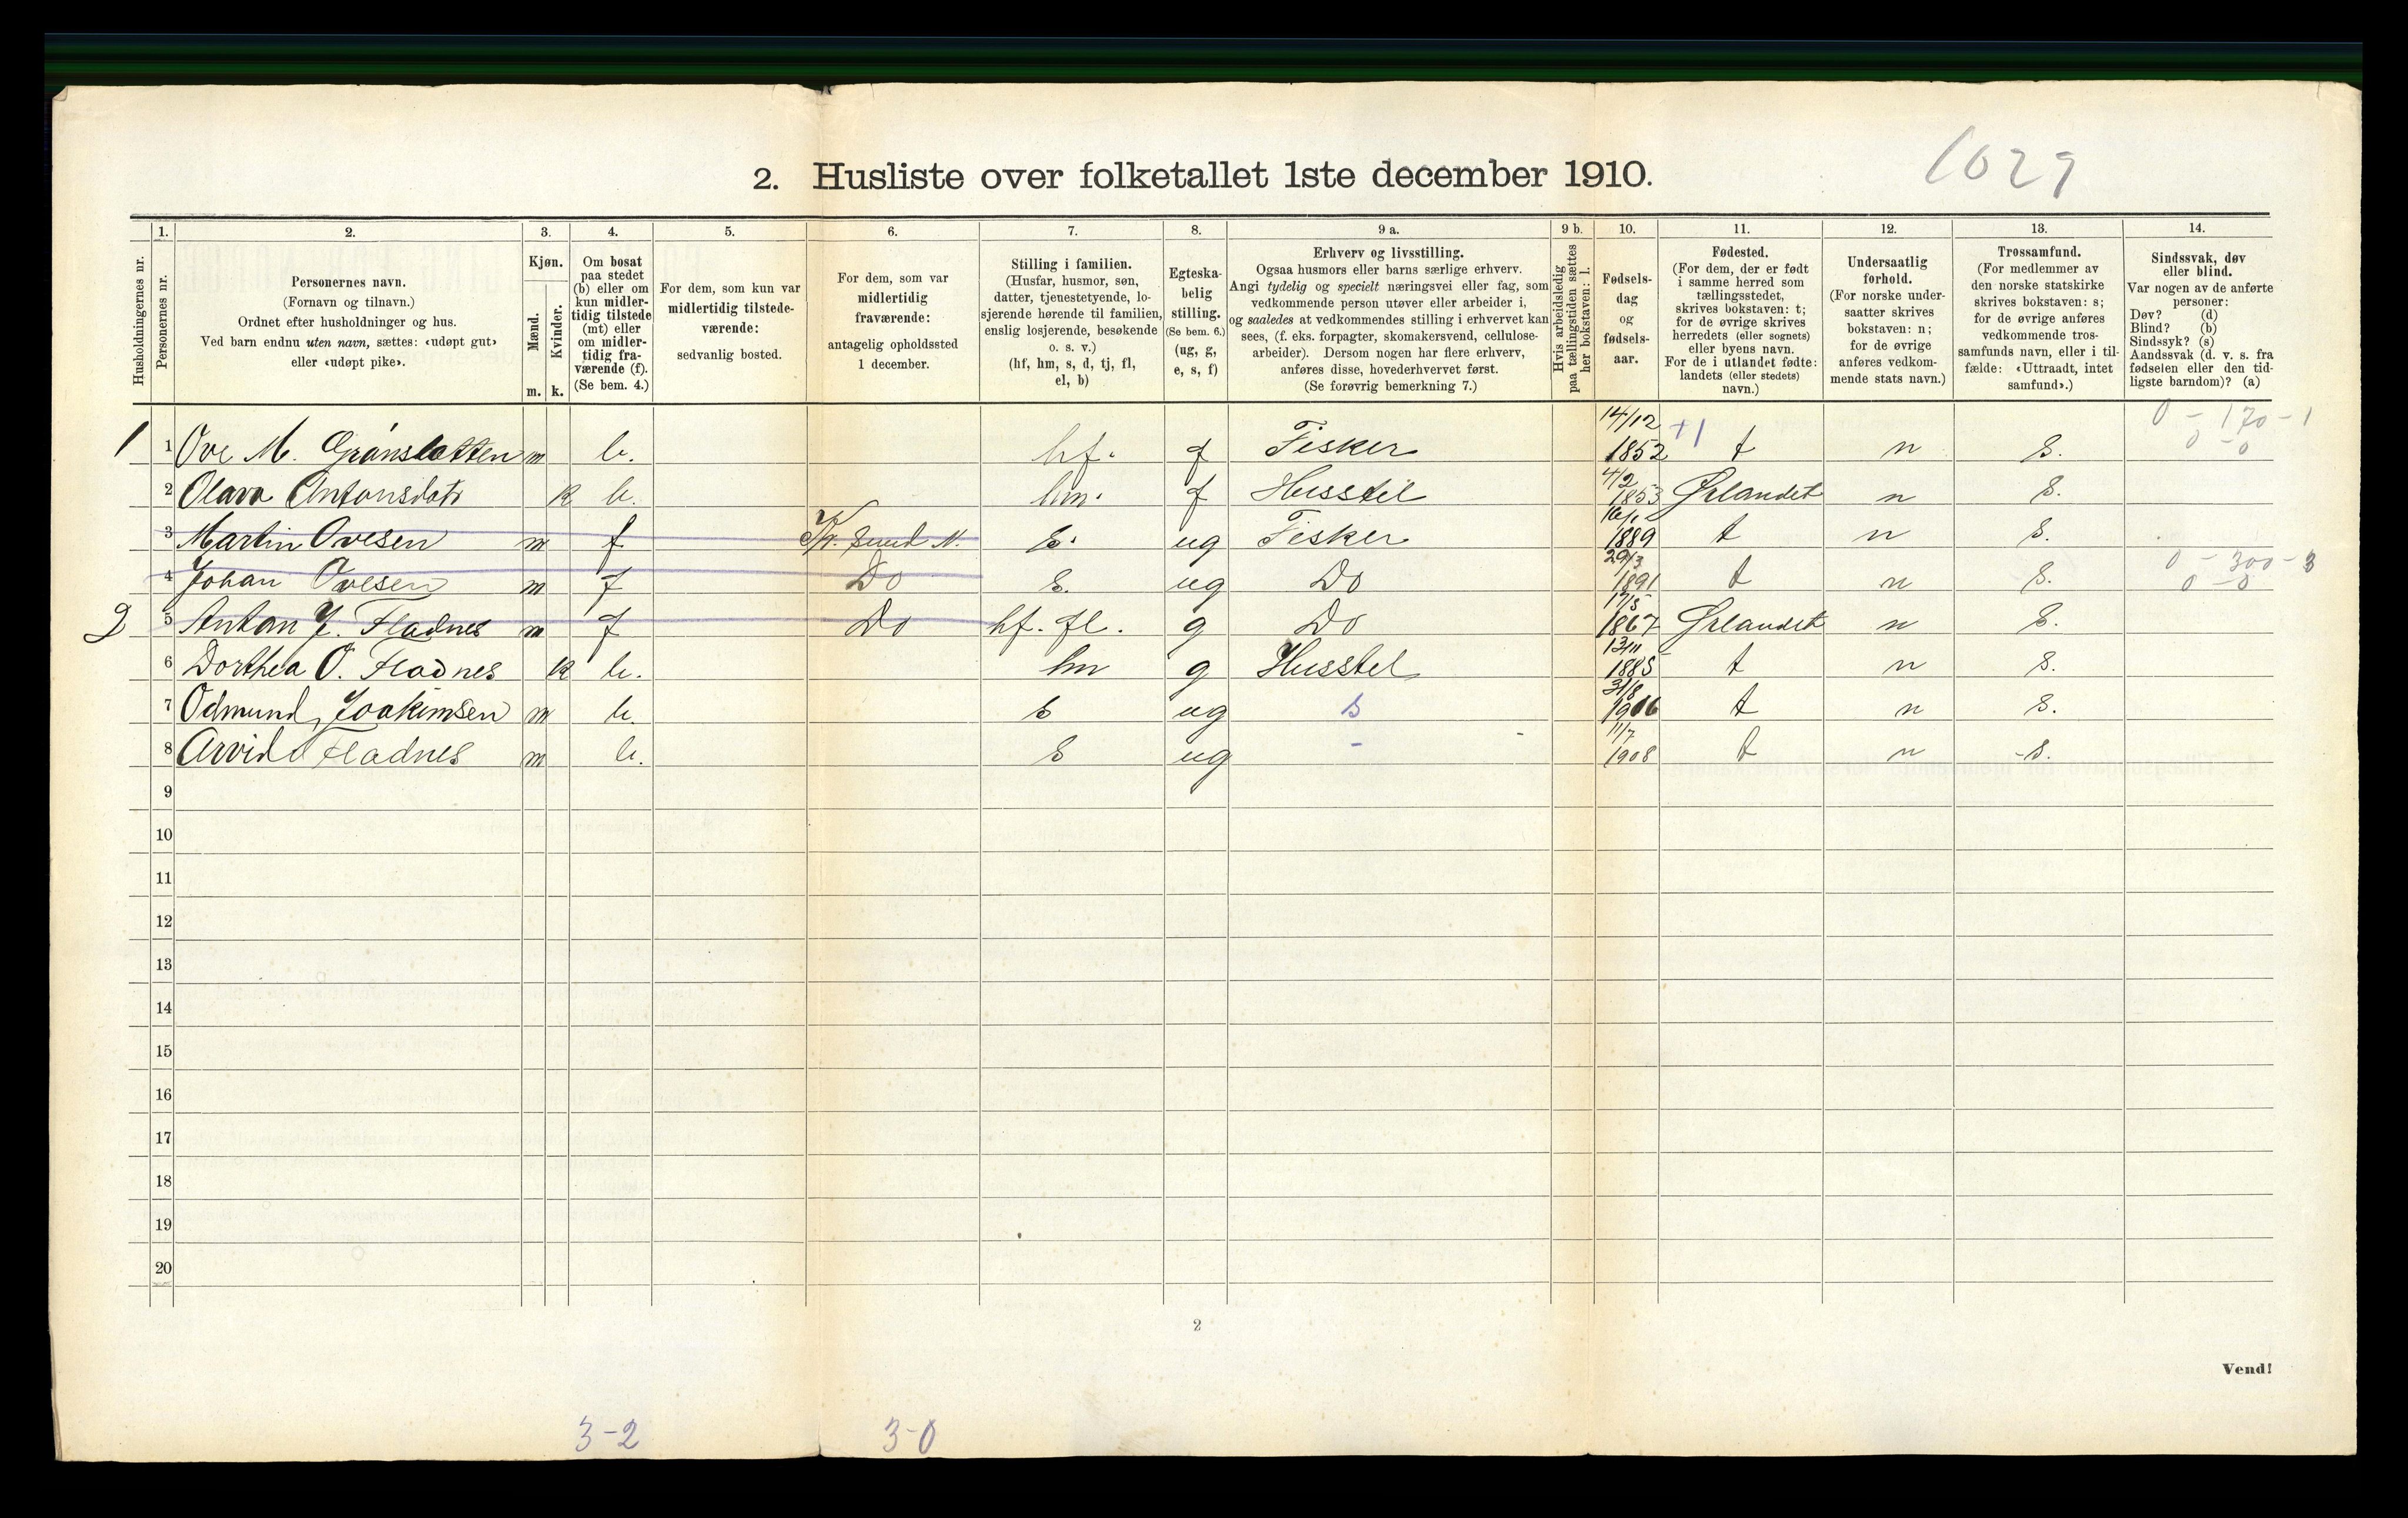 1029
2. Husliste over folketallet 1ste december 1910.
Husholdningernes nr.
1. Personernes nr.
2. Personernes navn. (Fornavn og tilnavn.) Ordnet efter husholdninger og hus. Ved barn endnu uten navn, sættes: «udøpt gut» eller «udøpt pike».
3. Kjøn. Mænd. m. Kvinder. k.
4. Om bosat paa stedet (b) eller om kun midlertidig tilstede (mt) eller om midlertidig fraværende (f). (Se bem. 4.)
5. For dem, som kun var midlertidig tilstedeværende: sedvanlig bosted.
6. For dem, som var midlertidig fraværende: antagelig opholdssted 1 december.
7. Stilling i familien. (Husfar, husmor, søn, datter, tjenestetyende, losjerende hørende til familien, enslig losjerende, besøkende o. s. v.) (hf, hm, s, d, tj, fl, el, b)
8. Egteskabelig stilling. (Se bem. 6.) (ug, g, e, s, f)
9 a. Erhverv og livsstilling. Ogsaa husmors eller barns særlige erhverv. Angi tydelig og specielt næringsvei eller fag, som vedkommende person utøver eller arbeider i, og saaledes at vedkommendes stilling i erhvervet kan sees, (f. eks. forpagter, skomakersvend, cellulosearbeider). Dersom nogen har flere erhverv, anføres disse, hovederhvervet først. (Se forøvrig bemerkning 7.)
9 b. Hvis arbeidsledig paa tællingstiden sættes her bokstaven: l.
10. Fødselsdag og fødselsaar.
11. Fødested. (For dem, der er født i samme herred som tællingsstedet, skrives bokstaven: t; for de øvrige skrives herredets (eller sognets) eller byens navn. For de i utlandet fødte: landets (eller stedets) navn.)
12. Undersaatlig forhold. (For norske undersaatter skrives bokstaven: n; for de øvrige anføres vedkommende stats navn.)
13. Trossamfund. (For medlemmer av den norske statskirke skrives bokstaven: s; for de øvrige anføres vedkommende trossamfunds navn, eller i tilfælde: «Uttraadt, intet samfund».)
14. Sindssvak, døv eller blind. Var nogen av de anførte personer: Døv? (d) Blind? (b) Sindssyk? (s) Aandssvak (d. v. s. fra fødselen eller den tidligste barndom)? (a)
0 - 170 - 1
0 - 0
1 1 Ove M. Grønsletten m b. hf. g Fisker 14/12 1852 +1 t n s.
2 Olava Antonsdatr k b. hm. g Husstel 4/2 1853 Ørlandet n s.
3 Martin Ovesen m f Kr. sund N. s. ug Fisker 1889 t n s.
0 - 300 - 3
0 - 0
4 Johan Ovesen m f Do s. ug Do 29/3 1891 t n s.
2 5 Anton J. Fladnes m f Do hf. fl. g Do 17/5 1867 Ørlandet n s.
6 Dorthea O. Fladnes k b. hm g Husstel 13/11 1885 t n s.
7 Odmund Joakimsen m b. s ug s 31/8 1906 t n s.
8 Arvid Fladnes m b. s ug - 11/7 1908 t n s.
9
10
11
12
13
14
15
16
17
18
19
20
2
Vend!
3-2 3-0